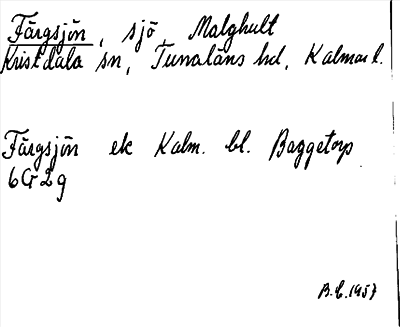 Färgsjön, sjö, Malghult
Kristdala sn, Tunaläns hd, Kalmar l.
Färgsjön ek Kalm. bl. Baggetorp
6G2g
B.E. 1957